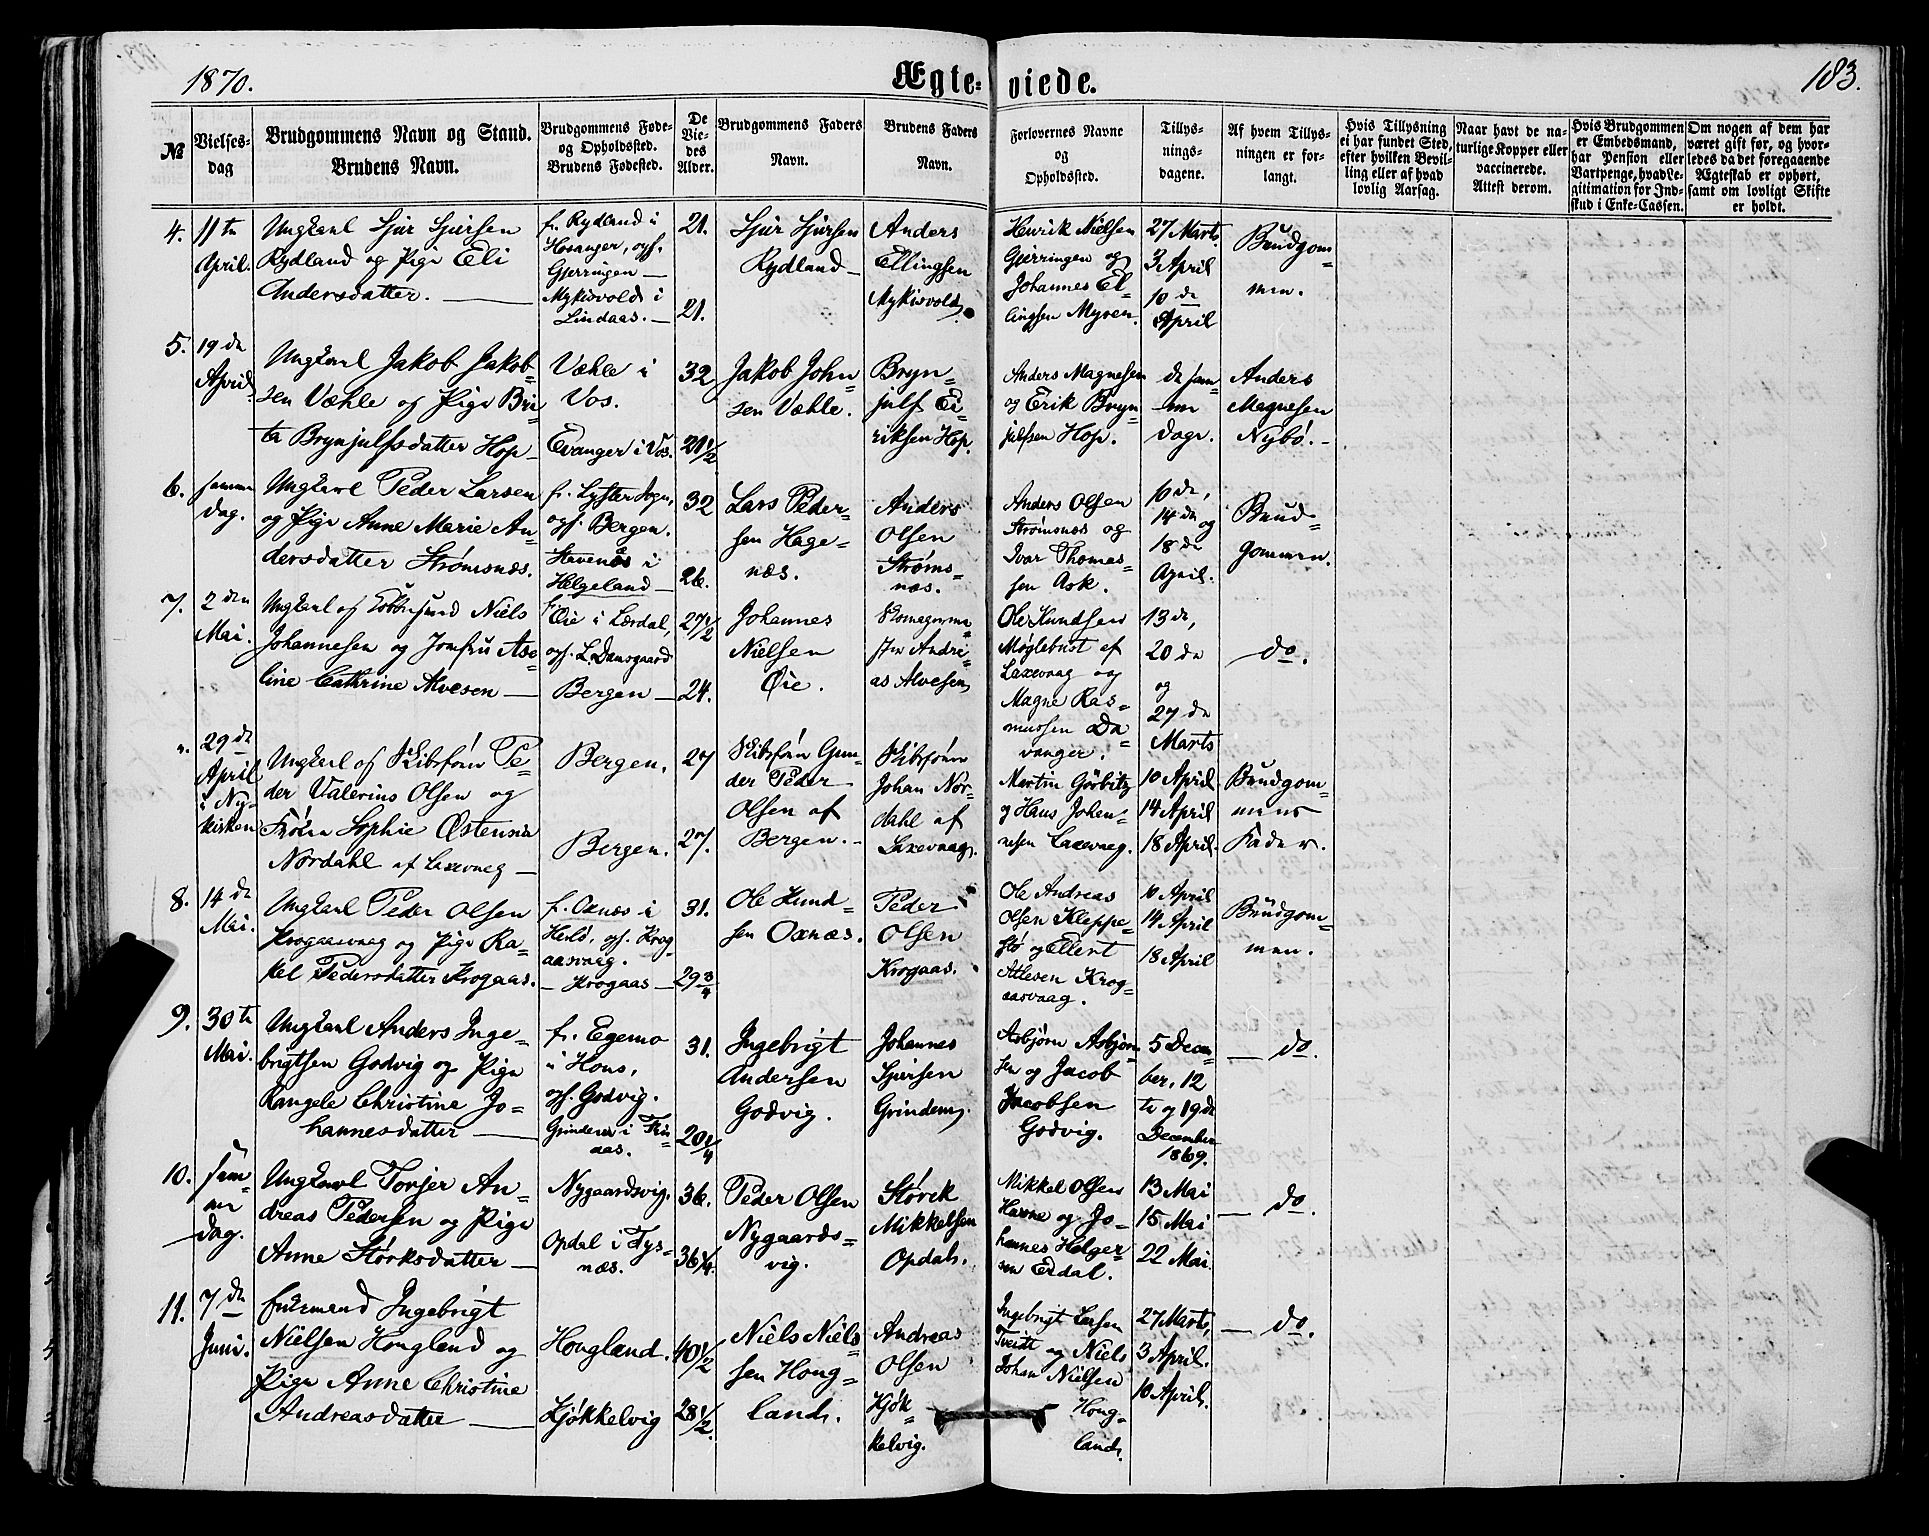 1870.
Ægte-viede.
183.
№
Vielses-
dag
Brudgommens Navn og Stand.
Brudens Navn.
Brudgommens Føde-
og Opholdssted.
Brudens Fødested.
De
Vie-
des
Alder.
Brudgommens Faders
Navn.
Brudens Faders
Navn.
Forlovernes Navne
og
Opholdssted.
Tillys-
nings-
dagene.
Af hvem Tillys-
ningen er for-
langt.
Hvis Tillysning
ei har fundet Sted,
efter hvilken Bevil-
ling eller af hvad
lovlig Aarsag.
Naar havt de na-
turlige Kopper eller
vaccinerede.
Attest derom.
Hvis Brudgommen
er Embedsmand,
har Pension eller
Vartpenge, hvad Le-
gitimation for Ind-
skud i Enke-Cassen.
Om nogen af dem har
været gift før, og hvor-
ledes da det foregaaende
Ægteskab er ophørt,
samt om lovligt Skifte
er holdt.
4.
11te
April.
Ungkarl Sjur Sjursen
Rydland og Pige Eli
Andersdatter.
f. Rydland i
Hosanger, oph.
Gjerringen
Mykisvold i
Lindaas.
21.
21.
Sjur Sjursen
Rydland
Anders
Ellingsen
Mykisvold
Henrik Nielsen
Gjerringen og
Johannes El-
lingsen Myren.
27 Marts
3 April
10 de
April
Brudgom-
men.
5.
19 de
April
Ungkarl Jakob Jakob-
sen Væhle og Pige Bri-
ta Brynjulfsdatter Hop
Væhle i
Vos.
Evanger i Vos.
32
21 1/2
Jakob John-
sen Væhle.
Bryn-
julf Ei-
riksen Hop.
Anders Magnesen
og Erik Bryn-
julfsen Hop.
de sam-
me
Dage.
Anders
Magnesen
Nybö.
6.
samme
Dag.
Ungkarl Peder Larsen
og Pige Anne Marie An-
dersdatter Strømsnæs.
f. Lyster Sogn,
oph. Bergen.
Stavenæs i
Helgeland
32
26.
Lars Peder-
sen Hage-
næs.
Anders
Olsen
Strøms-
næs.
Anders Olsen
Strømsnæs og
Ivar Thomas-
sen Ask.
10 de,
14 de og
18 de
April.
Brud-
gommen.
7.
2 den
Mai.
Niels
Johannesen og Jomfru Ase-
line Cathrine Alvesen
f. Øie i Lærdal,
oph. L. Damsgaard
Bergen
27 1/2
24.
Johannes
Nielsen
Øie.
Andre-
as Alvesen
Ole Knudsen
Møglebust af
Laxevaag og
Magne Ras-
mussen Da-
vanger.
13 de,
20 de
og
27 de
Marts
do.
29 de
April
i Ny-
kirken
Ungkarl og Skibsfører Pe-
der Valerius Olsen og
Frøken Sophie Østensia
Nordahl af Laxevaag
Bergen.
Bergen.
27
27.
Skibsfører Gun-
der Peder
Olsen af
Bergen.
Skibsfører
Johan Nor-
dahl af
Laxevaag.
Martin Görbitz
og Hans Johan-
nesen Laxevaag.
10 April
14 April
18 April.
Brudgom-
mens
Fader.
8.
14 de
Mai.
Ungkarl Peder Olsen
Krogaasvaag og Pige Ra-
kel Pedersdatter Krogaas.
f. Oxnæs i
Herlö, oph. Krog-
aasvaag.
Krogaas
31.
29 3/4
Ole Knud-
sen Oxnæs.
Peder
Olsen
Krogaas.
Ole Andreas
Olsen Kleppe-
stø og Ellert
Atlesen Krog-
aasvaag.
10 April
14 April
18 April
Brudgom-
men.
9.
30te
Mai.
Ungkarl Anders Inge-
brigtsen Godvig og Pige
Rangele Christine Jo-
hannesdatter
f. Egemo
i Hous,
oph. Godvig.
Grindem i Fin-
aas.
31.
20 1/4
Ingebrigt
Andersen
Godvig.
Johannes
Sjursen
Grindem.
Asbjørn Asbjørn-
sen og Jacob
Jacobsen
Godvig.
5 Decem-
ber, 12
te og 19 de
December
1869.
do.
10.
sam-
me
Dag.
Ungkarl Torjer An-
dreas Pedersen og Pige
Anne Størksdatter
Nygaardsvig.
Opdal i Tys-
næs.
36.
36 1/4.
Peder Olsen
Nygaards-
vig.
Størek
Mikkelsen
Opdal.
Mikkel Olsen
Havne og Jo-
hannes Helger-
sen Erdal.
13 Mai
15 Mai
22 Mai
do.
11.
7 de
Juni.
Enkemand Ingebrigt
Nielsen Hougland og
Pige Anne Christine
Andreasdatter
Hougland.
Kjøkkelvig
40 1/2
28 1/2.
Niels Niels-
sen Houg-
land.
Andreas
Olsen
Kjøk-
kelvig.
Ingebrigt Larsen
Tveidt og Niels
Johan Nielsen
Houg-
land.
27 Marts,
3 April.
10 April.
do.